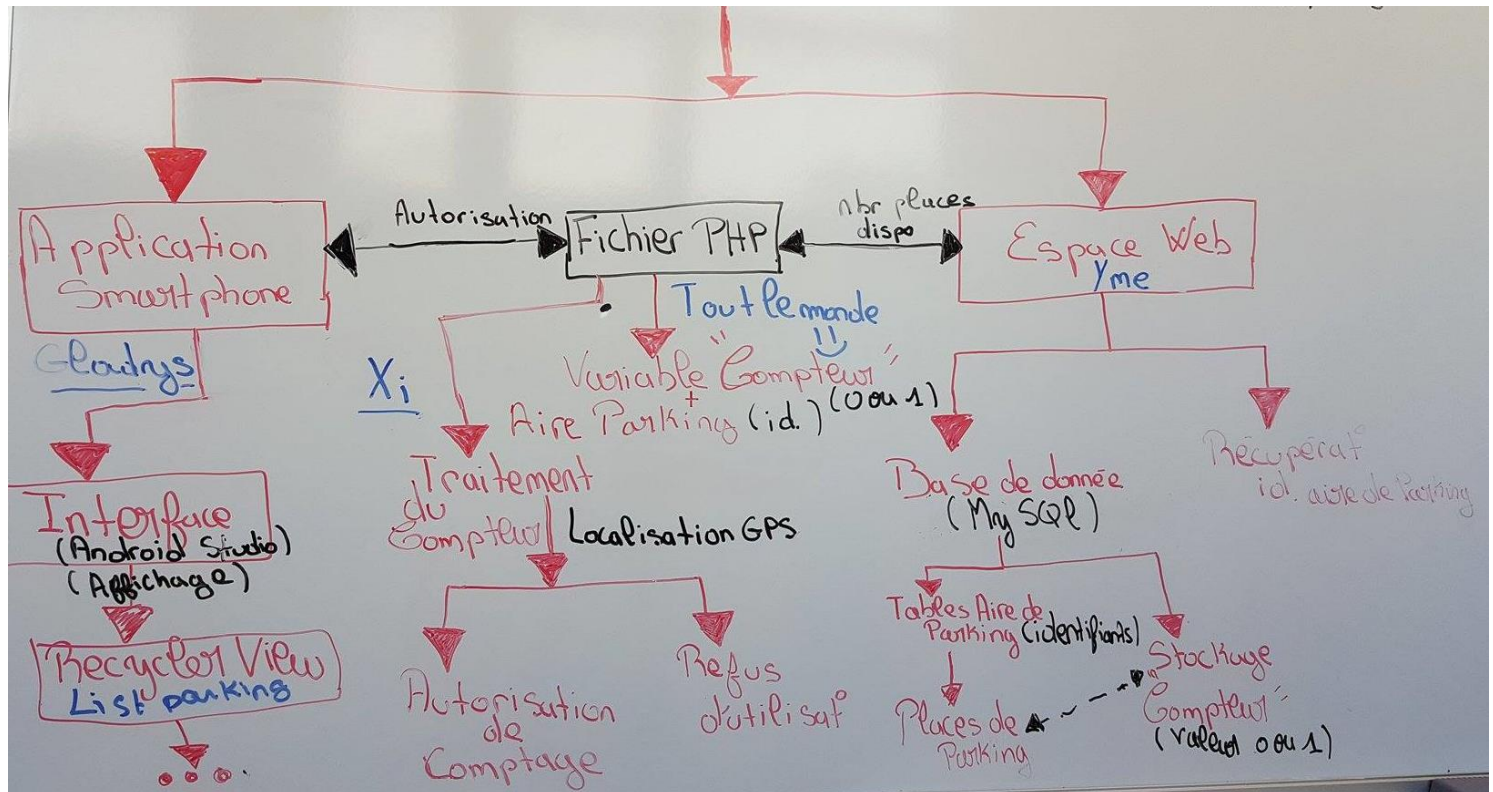 Autorisation
nbr places
dispo
Application
Smartphone
Fichier PHP
Espace Web
Yme
Gladrys
Xi
Tout le monde
Variable "Compteur"
+
Aire Parking (id.) (0 ou 1)
Interface
(Android Studio)
(Affichage)
Recycler View
List parking
Traitement
du
Compteur
Localisation GPS
Autorisation
de
Comptage
Refus
d'utilisat°
Base de donnée
(My SQl)
Récupérat°
id. aire de Parking
Tables Aire de
Parking (identifiants)
Places de
Parking
Stockage
"Compteur"
(valeur 0 ou 1)